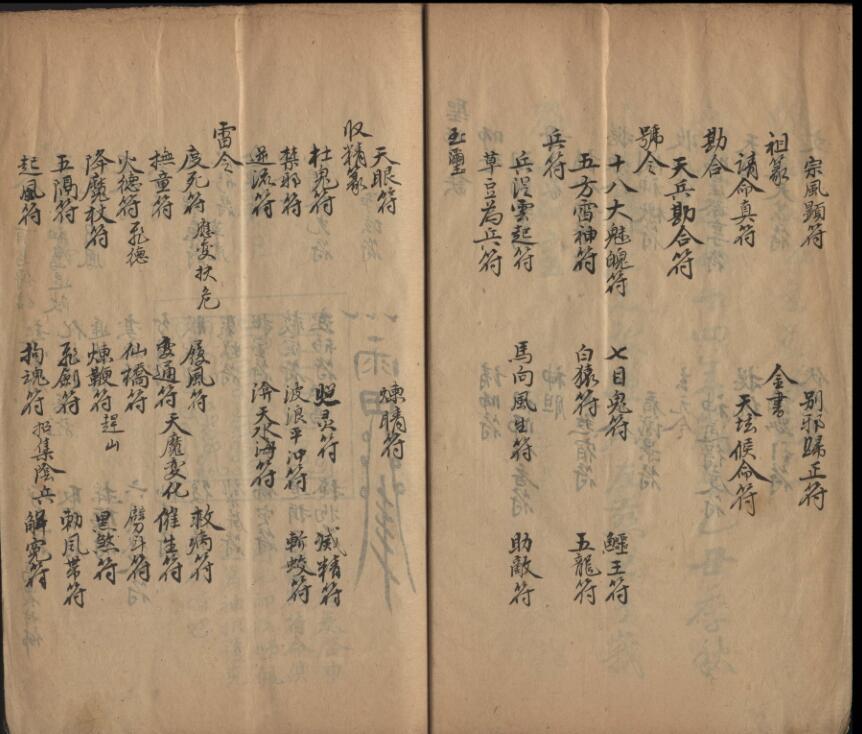 宗風顯符 別邪歸正符
祖篆 金書
請命真符 天坛候命符
勘合
天兵勘合符
號令
十八大魅魄符 七目鬼符 鱷王符
五方雷神符 白猿符 五龍符
兵符
兵從雲起符 馬向風生符 助敵符
草豆為兵符
玉璽
天眼符 煉睛符
收精篆
杜鬼符 照灵符 滅精符
禁邪符 波浪平沖符 斬蛟符
逆流符 渰天水海符
雷令
度死符 應变扶危 履風符 救病符
撫童符 变通符 天魔变化 催生符
火德符 飛德 仙橋符 劈斗符
降魔杖符 煉鞭符 趕山 黑煞符
五隔符 飛劍符 勅風帶符
起風符 拘魂符 招集陰兵 解冤符